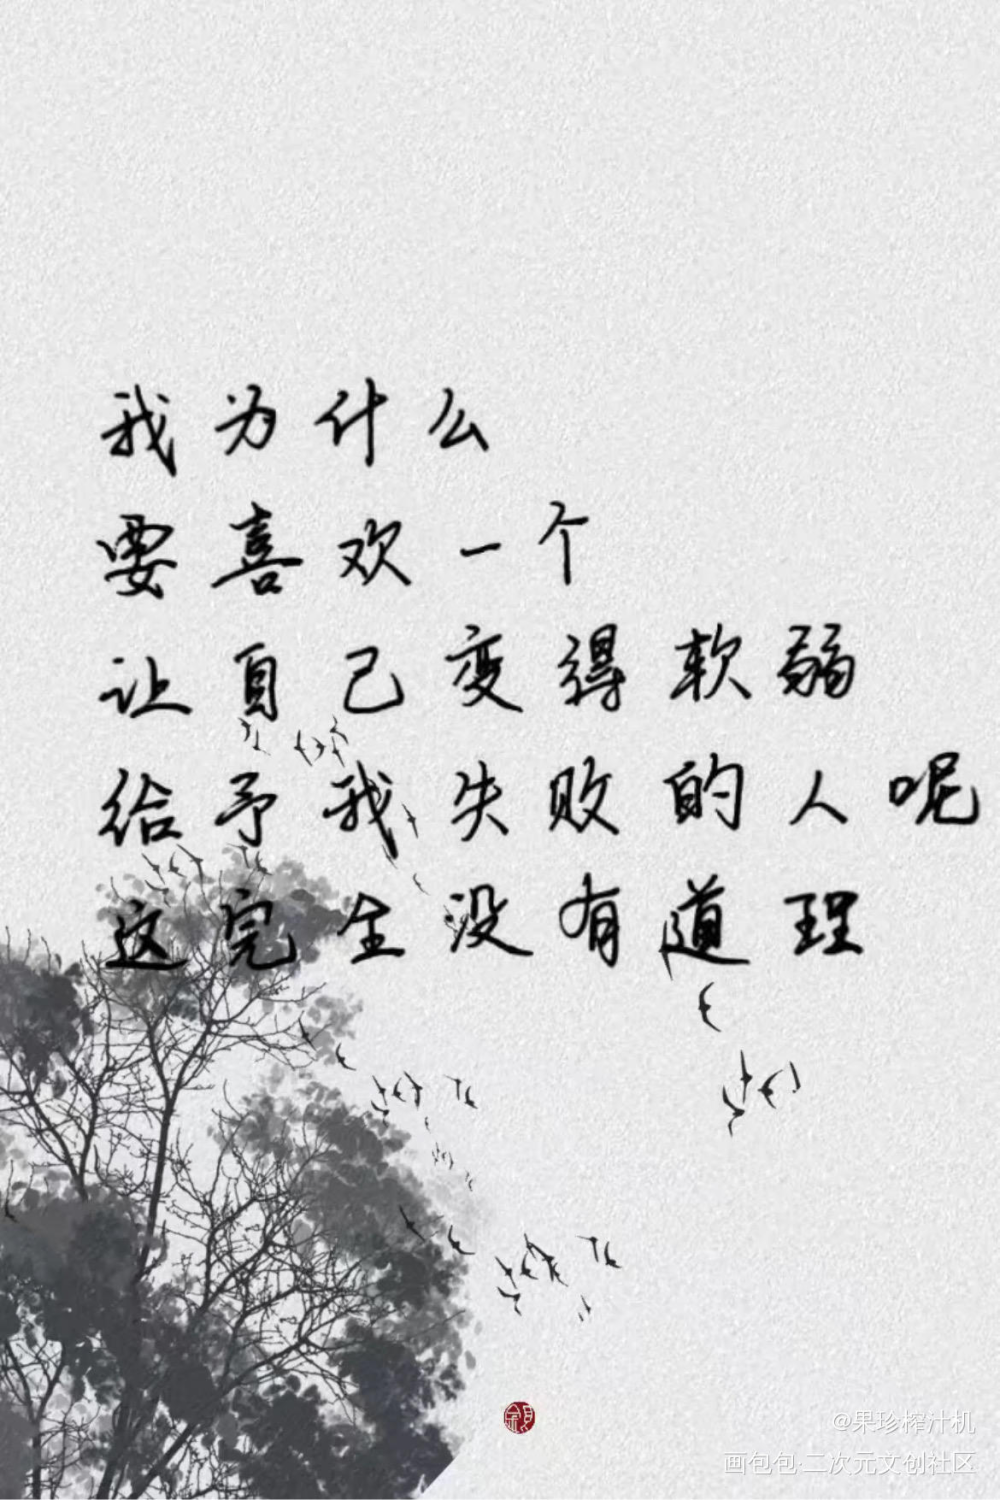 我为什么
要喜欢一个
让自己变得软弱
给予我失败的人呢
这完全没有道理
@果珍榨汁机
画包包·二次元文创社区